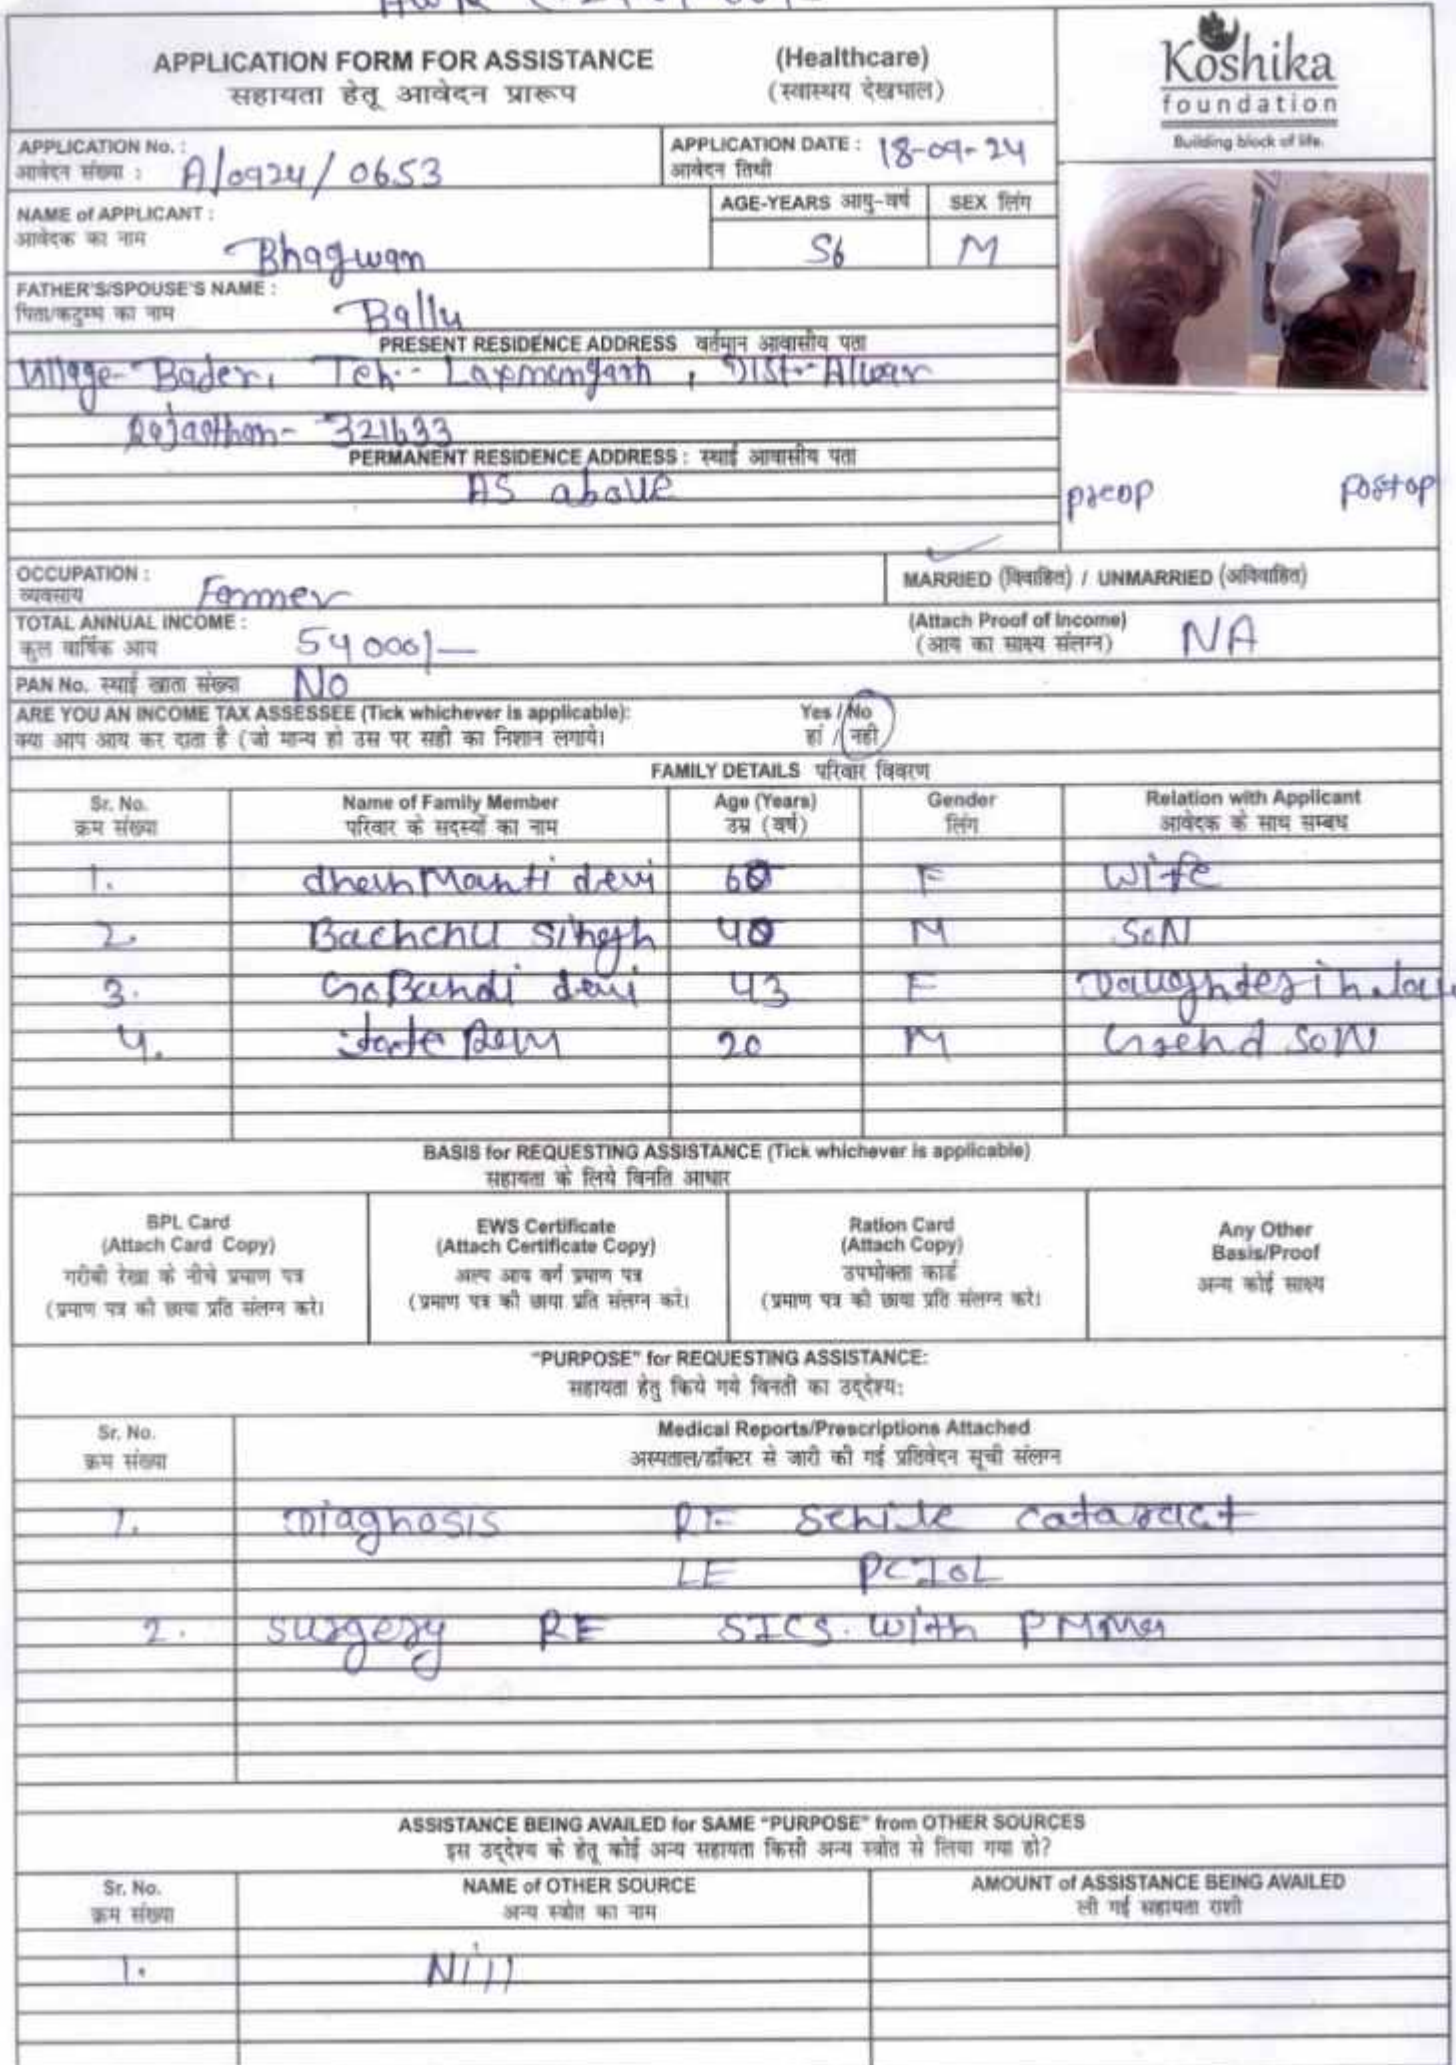 APPLICATION FORM FOR ASSISTANCE (Healthcare)
सहायता हेतू आवेदन प्रारूप (स्वास्थय देखभाल)
Koshika
foundation
Building block of life.
APPLICATION No. : A/0924/0653
आवेदन संख्या :
APPLICATION DATE : 18-09-24
आवेदन तिथी
NAME of APPLICANT : Bhagwan
आवेदक का नाम
AGE-YEARS आयु-वर्ष SEX लिंग
56 M
FATHER'S/SPOUSE'S NAME : Ballu
पिता/कटुम्ब का नाम
PRESENT RESIDENCE ADDRESS वर्तमान आवासीय पता
Village- Bader, Teh.- Laxmangarh, Dist.- Alwar
Rajasthan- 321633
PERMANENT RESIDENCE ADDRESS : स्थाई आवासीय पता
AS above
preop postop
OCCUPATION : Farmer
व्यवसाय
MARRIED (विवाहित) / UNMARRIED (अविवाहित)
TOTAL ANNUAL INCOME : 54000/-
कुल वार्षिक आय
(Attach Proof of Income) NA
(आय का साक्ष्य संलग्न)
PAN No. स्थाई खाता संख्या No
ARE YOU AN INCOME TAX ASSESSEE (Tick whichever is applicable): Yes / No
क्या आप आय कर दाता है (जो मान्य हो उस पर सही का निशान लगाये। हां / नही
FAMILY DETAILS परिवार विवरण
Sr. No. Name of Family Member Age (Years) Gender Relation with Applicant
क्रम संख्या परिवार के सदस्यों का नाम उम्र (वर्ष) लिंग आवेदक के साथ सम्बध
1. devi 60 F Wife
2. Bachchu Singh 40 M SON
3. devi 43 F Daughter in law
4. 20 M Grend SON
BASIS for REQUESTING ASSISTANCE (Tick whichever is applicable)
सहायता के लिये विनति आधार
BPL Card
(Attach Card Copy)
गरीबी रेखा के नीचे प्रमाण पत्र
(प्रमाण पत्र की छाया प्रति संलग्न करे।
EWS Certificate
(Attach Certificate Copy)
अल्प आय वर्ग प्रमाण पत्र
(प्रमाण पत्र की छाया प्रति संलग्न करे।
Ration Card
(Attach Copy)
उपभोक्ता कार्ड
(प्रमाण पत्र की छाया प्रति संलग्न करे।
Any Other
Basis/Proof
अन्य कोई साक्ष्य
"PURPOSE" for REQUESTING ASSISTANCE:
सहायता हेतु किये गये विनती का उद्देश्य:
Sr. No. Medical Reports/Prescriptions Attached
क्रम संख्या अस्पताल/डॉक्टर से जारी की गई प्रतिवेदन सूची संलग्न
1. Diagnosis RE Senile cataract
LE PCIOL
2. Surgery RE SICS with PMMA
ASSISTANCE BEING AVAILED for SAME "PURPOSE" from OTHER SOURCES
इस उद्देश्य के हेतू कोई अन्य सहायता किसी अन्य स्त्रोत से लिया गया हो?
Sr. No. NAME of OTHER SOURCE AMOUNT of ASSISTANCE BEING AVAILED
क्रम संख्या अन्य स्त्रोत का नाम ली गई सहायता राशी
1. Nill